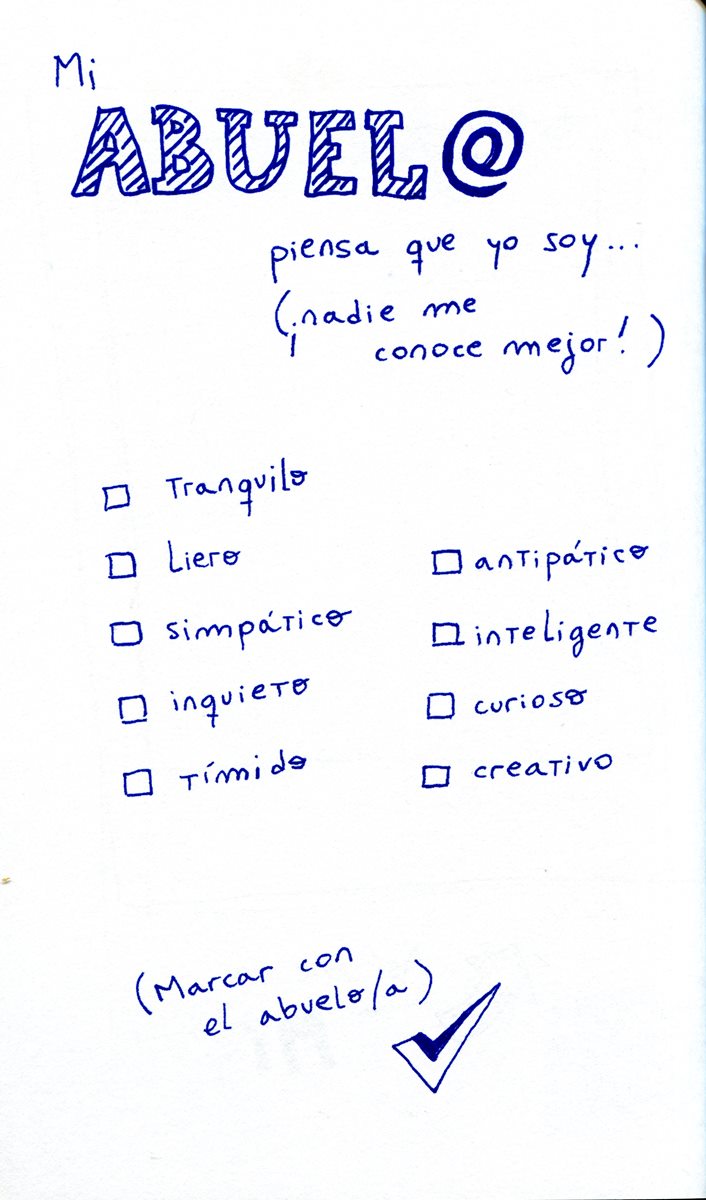 Mi
ABUEL@
piensa que yo soy...
(¡nadie me
conoce mejor!)
Tranquilo
Liero
simpático
inquieto
Tímido
antipático
inteligente
curioso
creativo
(Marcar con
el abuelo/a)